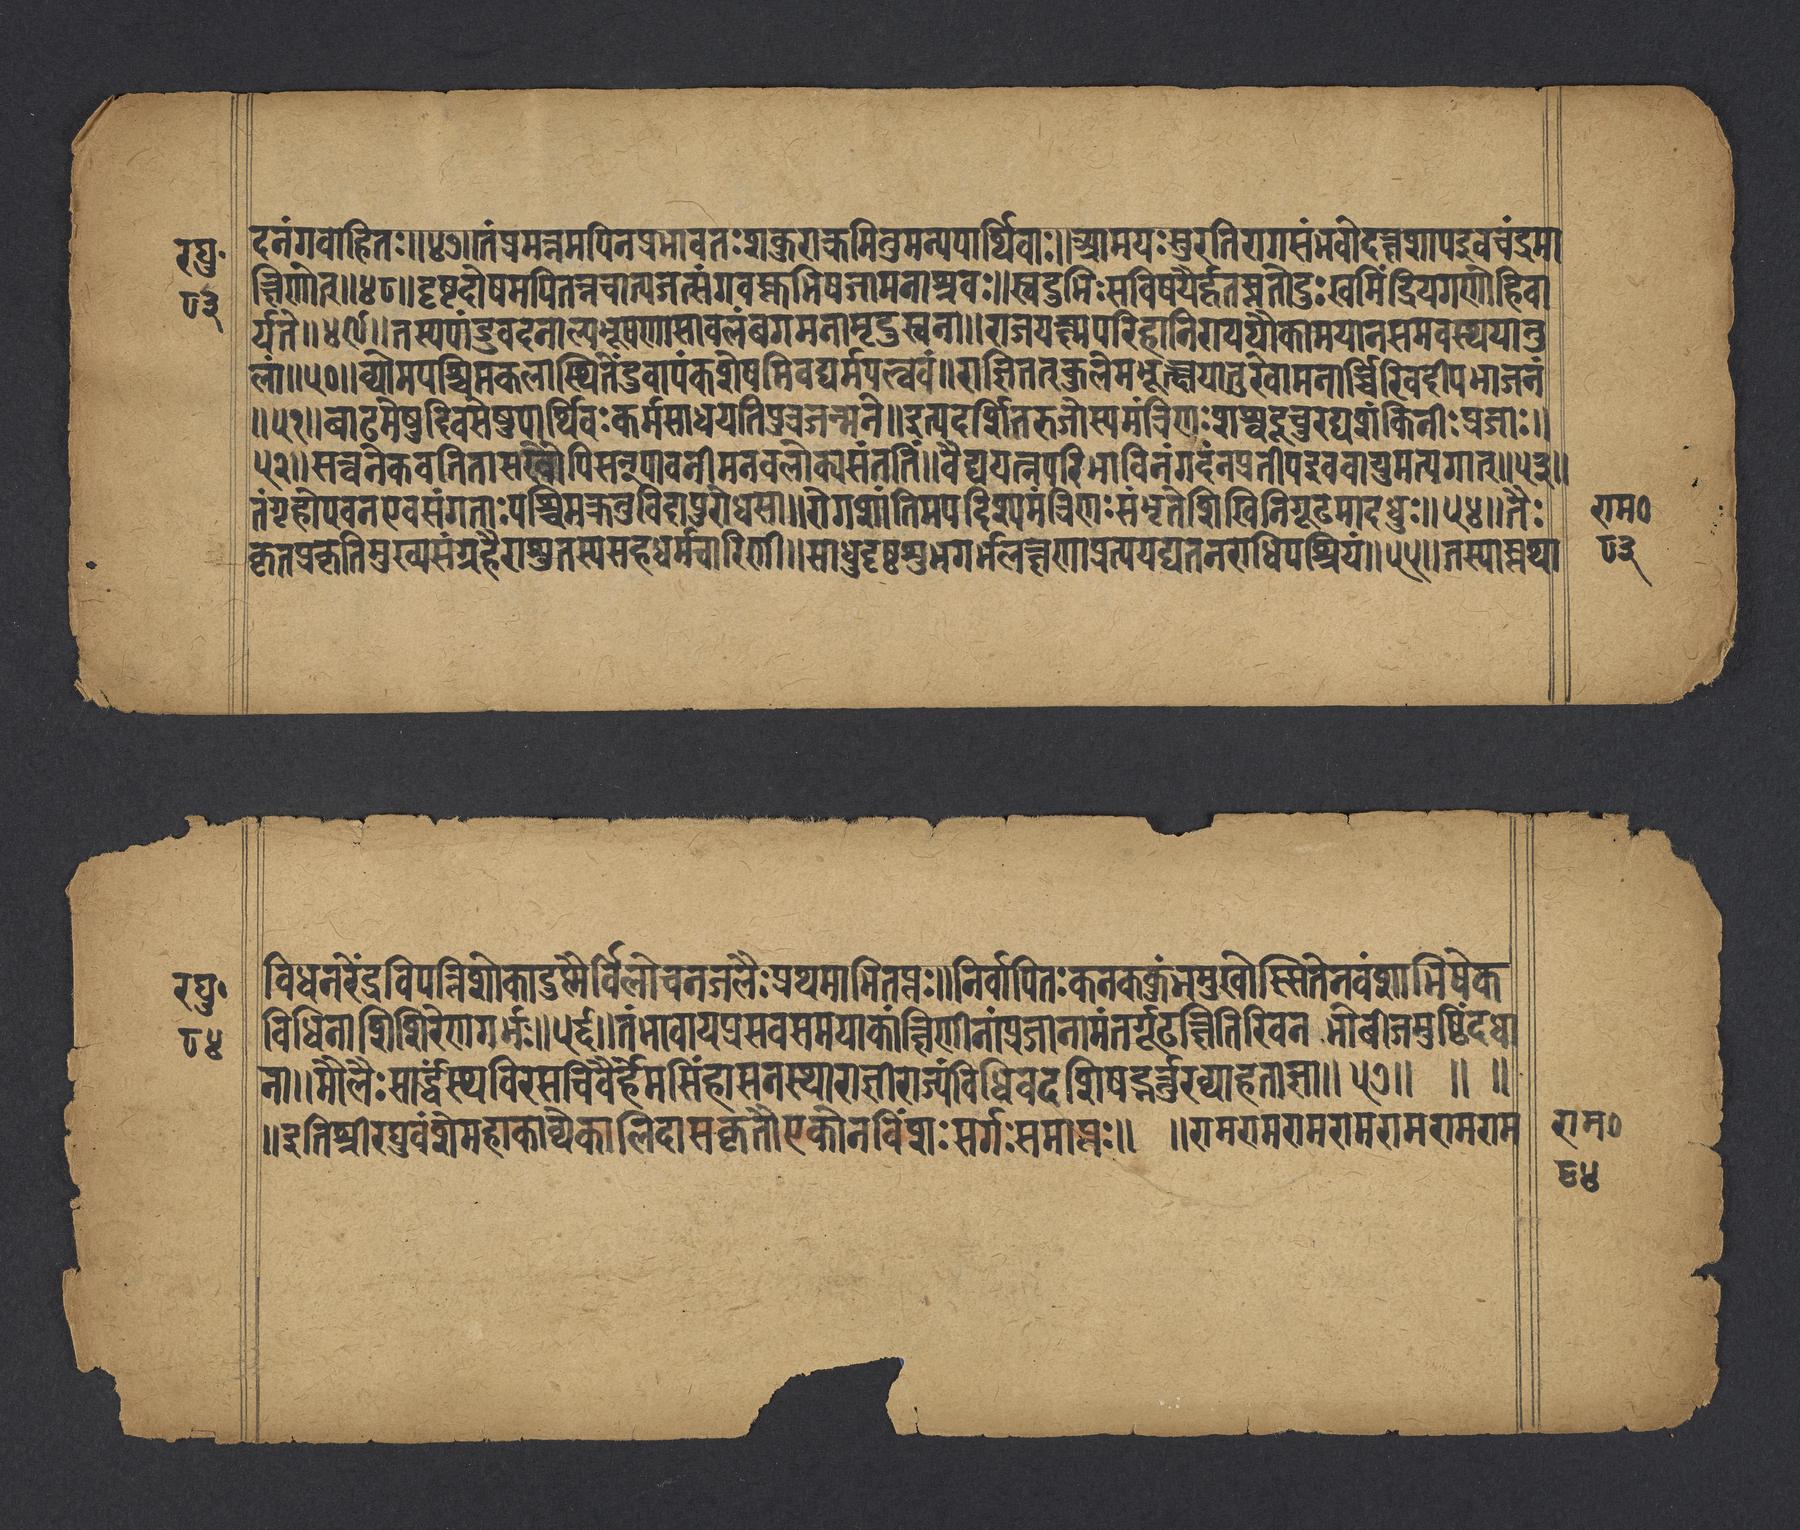 रघु॰
८३
दनंगवाहितः॥४७॥तंप्रमत्तमपिनप्रभावतःशेकुराक्रमितुमन्यपार्थिवाः॥आमयःसुरतिरागसंभवोदक्षशापइवचंद्रमा
क्षिणोत्॥४८॥दृष्टदोषमपितन्नचात्यजत्संगवस्तुभिषजामनाश्रवः॥स्वदुभिःसविषयैर्हृतस्ततोदुःखमिंद्रियगणोहिवा
र्यते॥४९॥तस्यपांडुवदनाल्पभूषणासावलंबगमनामृदुस्वना॥राजयक्ष्मपरिहानिराययौकामयानसमवस्थयातु
लां॥५०॥व्योमपश्चिमकलास्थितेंदुवापंकशेषमिवघर्मपल्वलं॥राज्ञितत्कुलमभूत्क्षयातुरेवामनार्च्चिरिवदीपभाजनं
॥५१॥बाढमेषुदिवसेषुपार्थिवःकर्मसाधयतिपुत्रजन्मने॥इत्यदर्शितरुजोस्यमंत्रिणःशश्वदूचुरघशंकिनीःप्रजाः॥
५२॥सत्वनेकवनितासखोपिसन्पावनीमनवलोक्यसंततिं॥वैद्ययत्नपरिभाविनंगदंनप्रतीपइववायुमत्यगात्॥५३॥
तंगृहोपवनएवसंगताःपश्चिमक्रतुविदापुरोधसा॥रोगशांतिमपदिश्यमंत्रिणःसंभृतेशिखिनिगूढमादधुः॥५४॥तैः
कृतप्रकृतिमुख्यसंग्रहैराशुतस्यसहधर्मचारिणी॥साधुदृष्टशुभगर्भलक्षणाप्रत्यपद्यतनराधिपश्रियं॥५५॥तस्यास्तथा
राम०
८३
रघु॰
८४
विधनरेंद्रविपत्तिशोकादुष्णैर्विलोचनजलैःप्रथमाभितप्तः॥निर्वापितःकनककुंभमुखोस्सितेनवंशाभिषेक
विधिनाशिशिरेणगर्भः॥५६॥तंभावायप्रसवसमयाकांक्षिणीनांप्रजानामंतर्गूढंक्षितिरिवन भोबीजमुष्टिंदधा
ना॥मौलैःसार्द्धंस्थविरसचिवैर्हेमसिंहासनस्थाराज्ञीराज्यंविधिवदशिषद्भर्त्तुरव्याहताज्ञा॥५७॥ ॥ ॥
॥इतिश्रीरघुवंशेमहाकाव्येकालिदासकृतौएकोनविंशःसर्गःसमाप्तः॥ ॥रामरामरामरामरामरामराम
राम०
८४